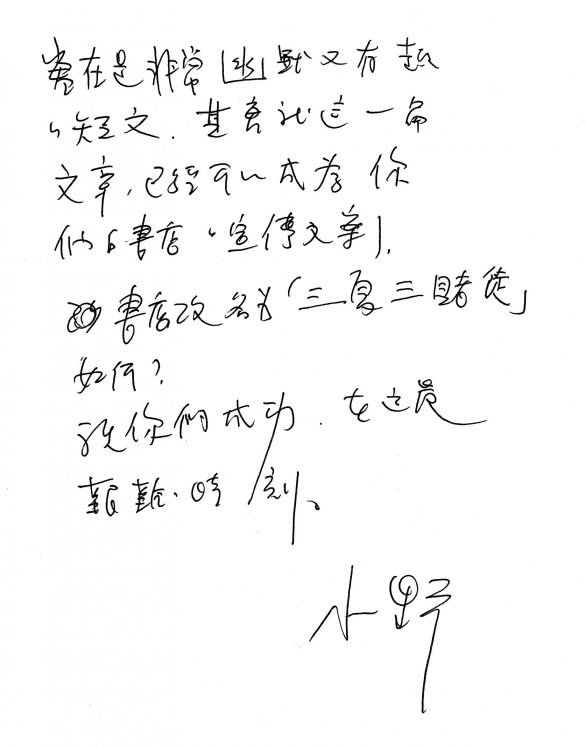 實在是非常幽默又有趣
的短文.其實就這一篇
文章,已經可以成為你
們的書店的宣傳文案).
書店改名為「三夏三賭徒」
如何?
祝你們成功.在這最
艱難的時刻。
小野